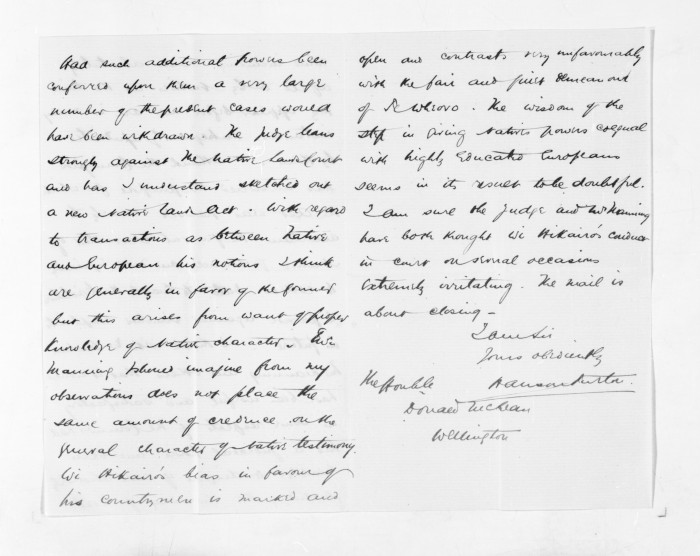 Had such additional powers been
conferred upon them a very large
number of the present cases would
have been withdrawn. The Judge leans
strongly against the Native Land Court
and has I understand sketched out
a new Native Land Act. With regard
to transactions as between Native
and European his notions I think
are generally in favor of the former
but this arises from want of proper
knowledge of Native character.
Manning I should imagine from my
observations does not place the
same amount of credence on the
general character of Native testimony.
Wi Hikairo's bias in favour of
his countrymen is marked and
open and contrasts very unfavourably
with the fair and just demeanour
of Te Wheoro. The wisdom of the
step in giving Natives powers coequal
with highly Educated Europeans
seems in its result to be doubtful.
I am sure the Judge and Mr Manning
have both thought Wi Hikairo's conduct
in court on several occasions
extremely irritating. The mail is
about closing -
I am Sir
Yours obediently
Hanson Turton.
The Honble
Donald McLean
Wellington